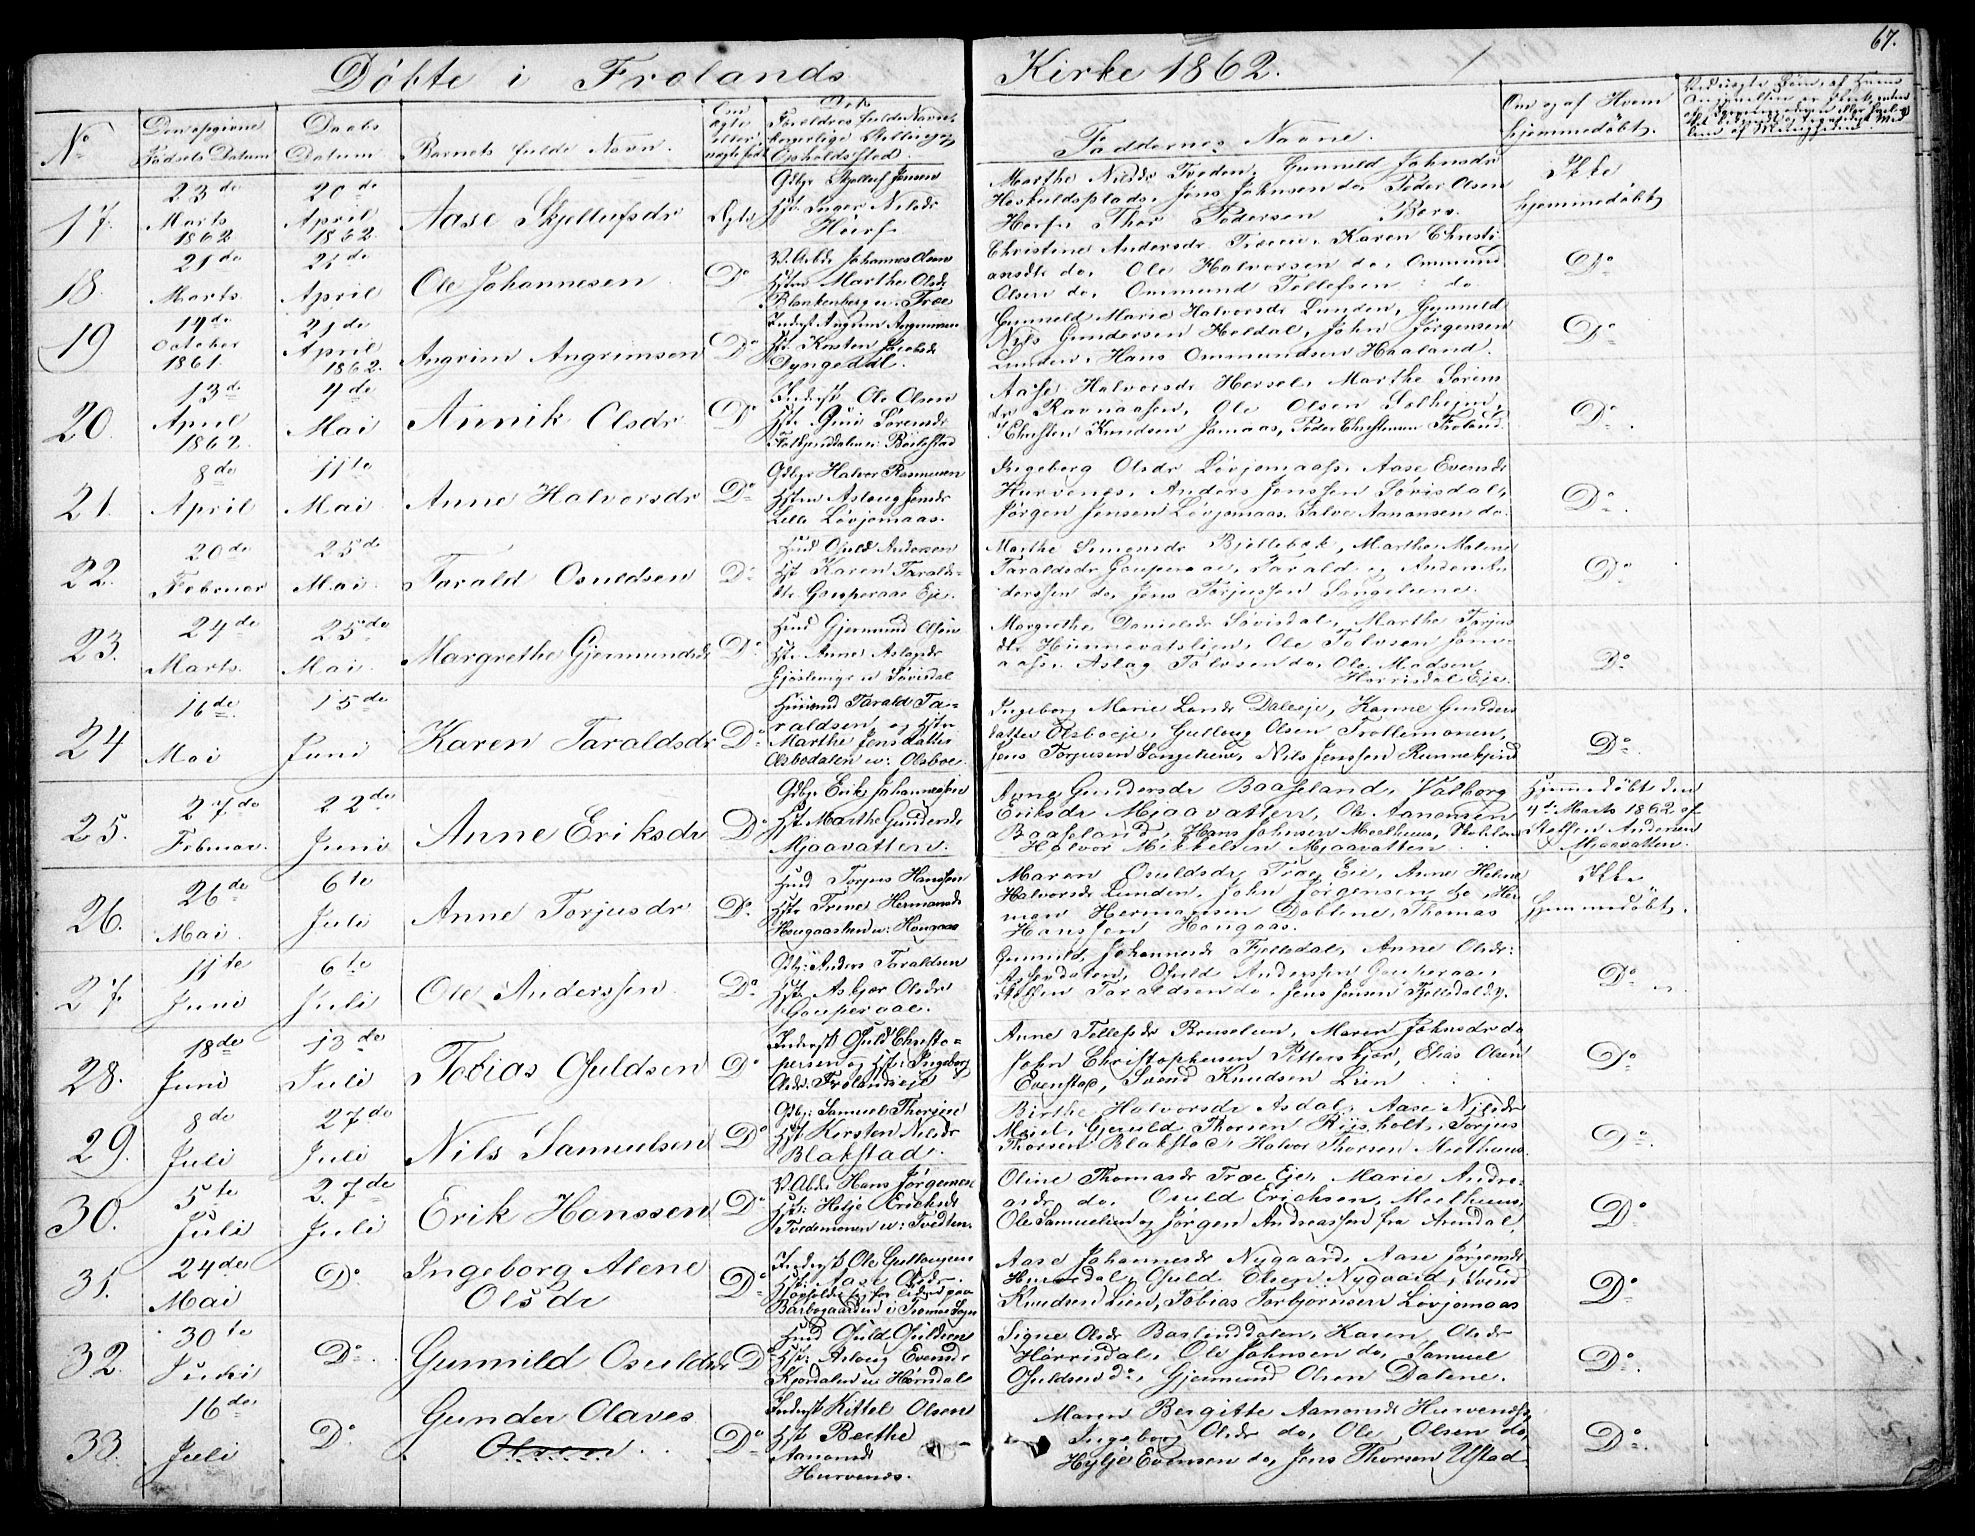 67.
Döbte i Frolands Kirke 1862.
No
Den opgivne Fødsels Datum
Daabs Datum
Barnets fulde Navn.
Faddernes Navne.
Om og af Hvem hjemmedöbt.
17. 23de Marts 1862 20de April 1862 Aase Skjellufsdr
Gbbr Skjelluf Jensen
Hst. Inger Nilsdr
Marthe Nilsdr Tveden, Gunnild Johnsdr
Heskuldsplads, Jens Johnsen do, Peder Olsen
Herf, Thor Pedersen Bers.
Ikke hjemmedöbt
18. 21de Marts 21de April Ole Johannesen Do
Johannes Olsen
Hstru Marthe Olsdr
Blankenberg u. Troe
Christine Andersdr Troeeie, Karen Christi
ansdtr do, Ole Halvorsen do, Ommund
Olsen do, Ommund Tellefsen do
Do
19 14de October 1861. 21de April 1862. Angrim Angrimsen Do
Inderst Angrim Angrimsen
Hst. Kirsten Jacobsdr
Dyngedal.
Gunneld Marie Halvorsdr Lunden, Gunneld
Nils Gundersen Heldal, John Jörgensen
Lunden, Hans Ommundsen Haaland.
Do
20 13de April 1862. 4de Mai Annik Olsdr Do
Inderst Ole Olsen
Hst. Guri Sörensdr
Aase Halvorsdr Hersel, Marthe Sörens
dr Ravnaasen, Ole Olsen Solheim,
Christen Knudsen Jomaas, Peder Christensen Froland.
Do.
21. 8de April 11te Mai Anne Halvorsdr Do
Gbbr Halvor Rasmussen
Hstru Aslaug Jensdr
Lille Lövjomaas.
Ingeborg Olsdr Lövjomaas, Aase Evensdr
Hurvenes, Anders Jenssen Sörisdal,
Jörgen Jensen Lövjomaas, Salve Aanonsen do.
Do.
22. 20de Februar 25de Mai Tarald Osuldsen Do
Husd Osuld Andersen
Hst Karen Taralds-
dtr Gauperaae Eje.
Marthe Simonsdr Bjellebek, Marthe Malene
Taraldsdr Gauperaae, Tarald og Anders An
derssen do, Jens Torjussen Songeliene.
Do
23. 24de Marts. 25de Mai Margrethe Gjermundsdr Do
Husd Gjermund Olsen
Hst. Anne Aslaksdr
Margrethe Danielsdr Sörisdal, Marthe Torjus
dr Hunnevatslien, Ole Tolvsen Jom-
aas, Aslag Tolvsen do, Ole Madsen
Hörrisdal Eje.
Do
24 16de Mai 15de Juni Karen Taraldsdr Do
Husmd Tarald Ta-
raldsen, og Hstru
Marthe Jensdatter
Olsbodalen u: Olsboe
Ingeborg Marie Larsdr Daleeje, Karine Gunders
datter Olsboeje, Gutloug Olsen Trollemonen,
Jens Torjusen Songeliene, Nils Jenssen Runneskjend
Do.
25. 27de Februar. 22de Juni Anne Eriksdr Do
Gbbr Erik Johannessen
Hst Marthe Gundersdr
Mjaavatten.
Anne Gundersdr Baaseland, Valborg
Eriksdr Mjaavatten, Ole Aanonsen
Baaseland, Hans Johnsen Moelhuus,
Halvor Mikkelsen Mjaavatten.
Hjemmedöbt den
4de Marts 1862 af
Steffen Andersen
Mjaavatten.
26. 26de Mai 6te Juli Anne Torjusdr Do
Husd Torjus Hanssen
Hstr Trine Hermansdr
Hougaashei u: Hougaas
Maren Osuldsdr Troe Eie, Anne Helene
Halvorsdr Lunden, John Jörgensen do, Her
man Hermansen Doblene, Thomas
Hanssen Hougaas.
Ikke hjemmedöbt.
27. 11te Juni 6te Juli Ole Anderssen. Do
Gbbr: Anders Taraldsen
Hst Asbjør Olsdr
Gauperaae.
Gunnild Johannesdr Fjelldal, Anne Olsdr
Assedalen, Osuld Anderssen Gauperaae,
Steffen Taraldsen do, Jens Jensen Fjelldal
Do
28. 18de Juni 13de Juli Tobias Osuldsen Do
Inderst Osuld Christo-
persen og Hst. Ingeborg
Olsdr. Frolandseje
Anne Tellefsdr Bruselien, Maren Johnsdr do
John Christophersen Pettersbjör, Elias Olsen
Evenstad, Svend Knudsen Lien
Do
29. 8de Juli 27de Juli Nils Samuelsen Do
Gbbr: Samuel Thorsen
Hst Kirsten Nilsdr
Blakstad.
Birthe Halvorsdr Asdal, Aase Nilsdr
Messel, Gjeruld Thorsen Rijsholt, Torjus
Thorsen Blakstad, Halvor Thorsen Moelhuus.
Do.
30. 5te Juli 27de Juli Erik Hanssen Do
Hans Jörgensen
Hst: Helje Ericksdr
Tvedemonen u: Tvedten.
Oline Thomasdr Troe Eje, Marie Andre-
asdr do, Osuld Ericksen, Moelhuus,
Ole Samuelsen og Jörgen Andreassen fra Arendal,
Do
31. 24de Mai Do Ingeborg Alene Olsdr Do
Inderst Ole Gutlougsen
Hst: Aase Olsdr
Barbogaarden i Tromø Sogn
Aase Johannesdr Nygaard, Aase Jörgensdr
Osuld Olsen Nygaard, Svend
Knudsen Lien, Tobias Torbjörnsen Lövjomaas
Do
32. 30te Juni Do Gunnild Osuldsdr Do
Husd Osuld Osuldsen
Hst: Aslaug Evensdr
Signe Olsdr Barlinddalen, Karen Olsdr
Hörrisdal, Ole Johnsen do, Samuel
Osuldsen do, Gjermund Olsen Dalene.
Do.
33. 16de Juli Do Gunder Olaves Olsen Do
Inderst Kittel Olsen
Hst Berthe
Aanonsdr
Hurvenes.
Maren Bergitte Aanonsdr Hurvenes,
Ingeborg Olsdr do, Ole Olsen do,
Hylje Evensen do, Jens Thorsen Ustad
Do.